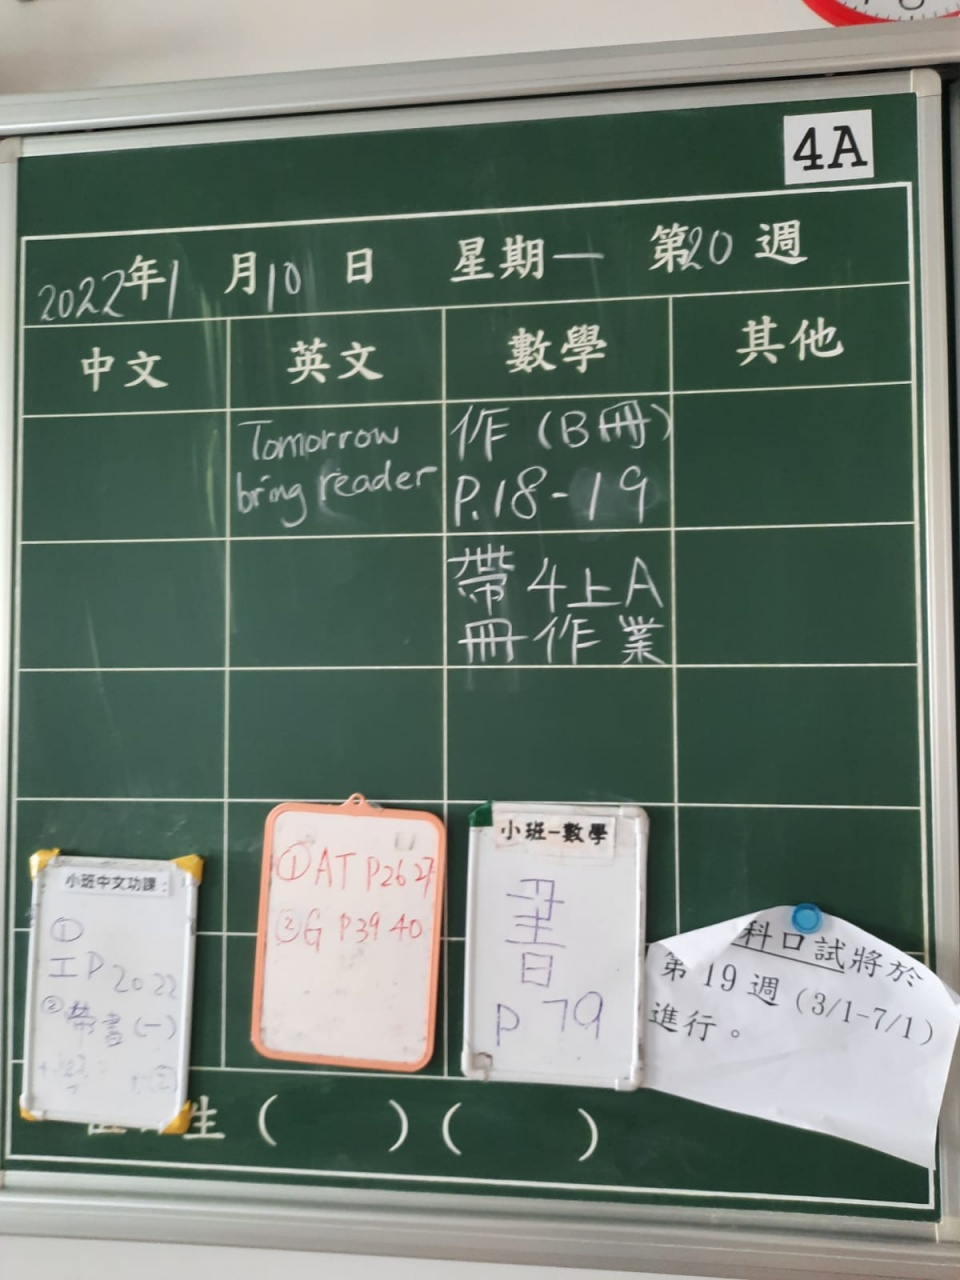 4A
2022年1月10日 星期一 第20週
中文 英文 數學 其他
Tomorrow
bring reader
作（B冊）
P.18-19
帶4上A
冊作業
小班中文功課：
①
工P 2022
②帶書(一)
①AT P26 27
②G P39 40
小班-數學
日
P 79
科口試將於
第19週（3/1-7/1）
進行。
生（ ）（ ）